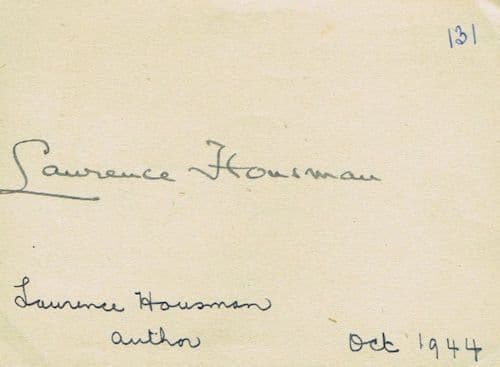 131
Laurence Housman
Laurence Housman
author
Oct 1944